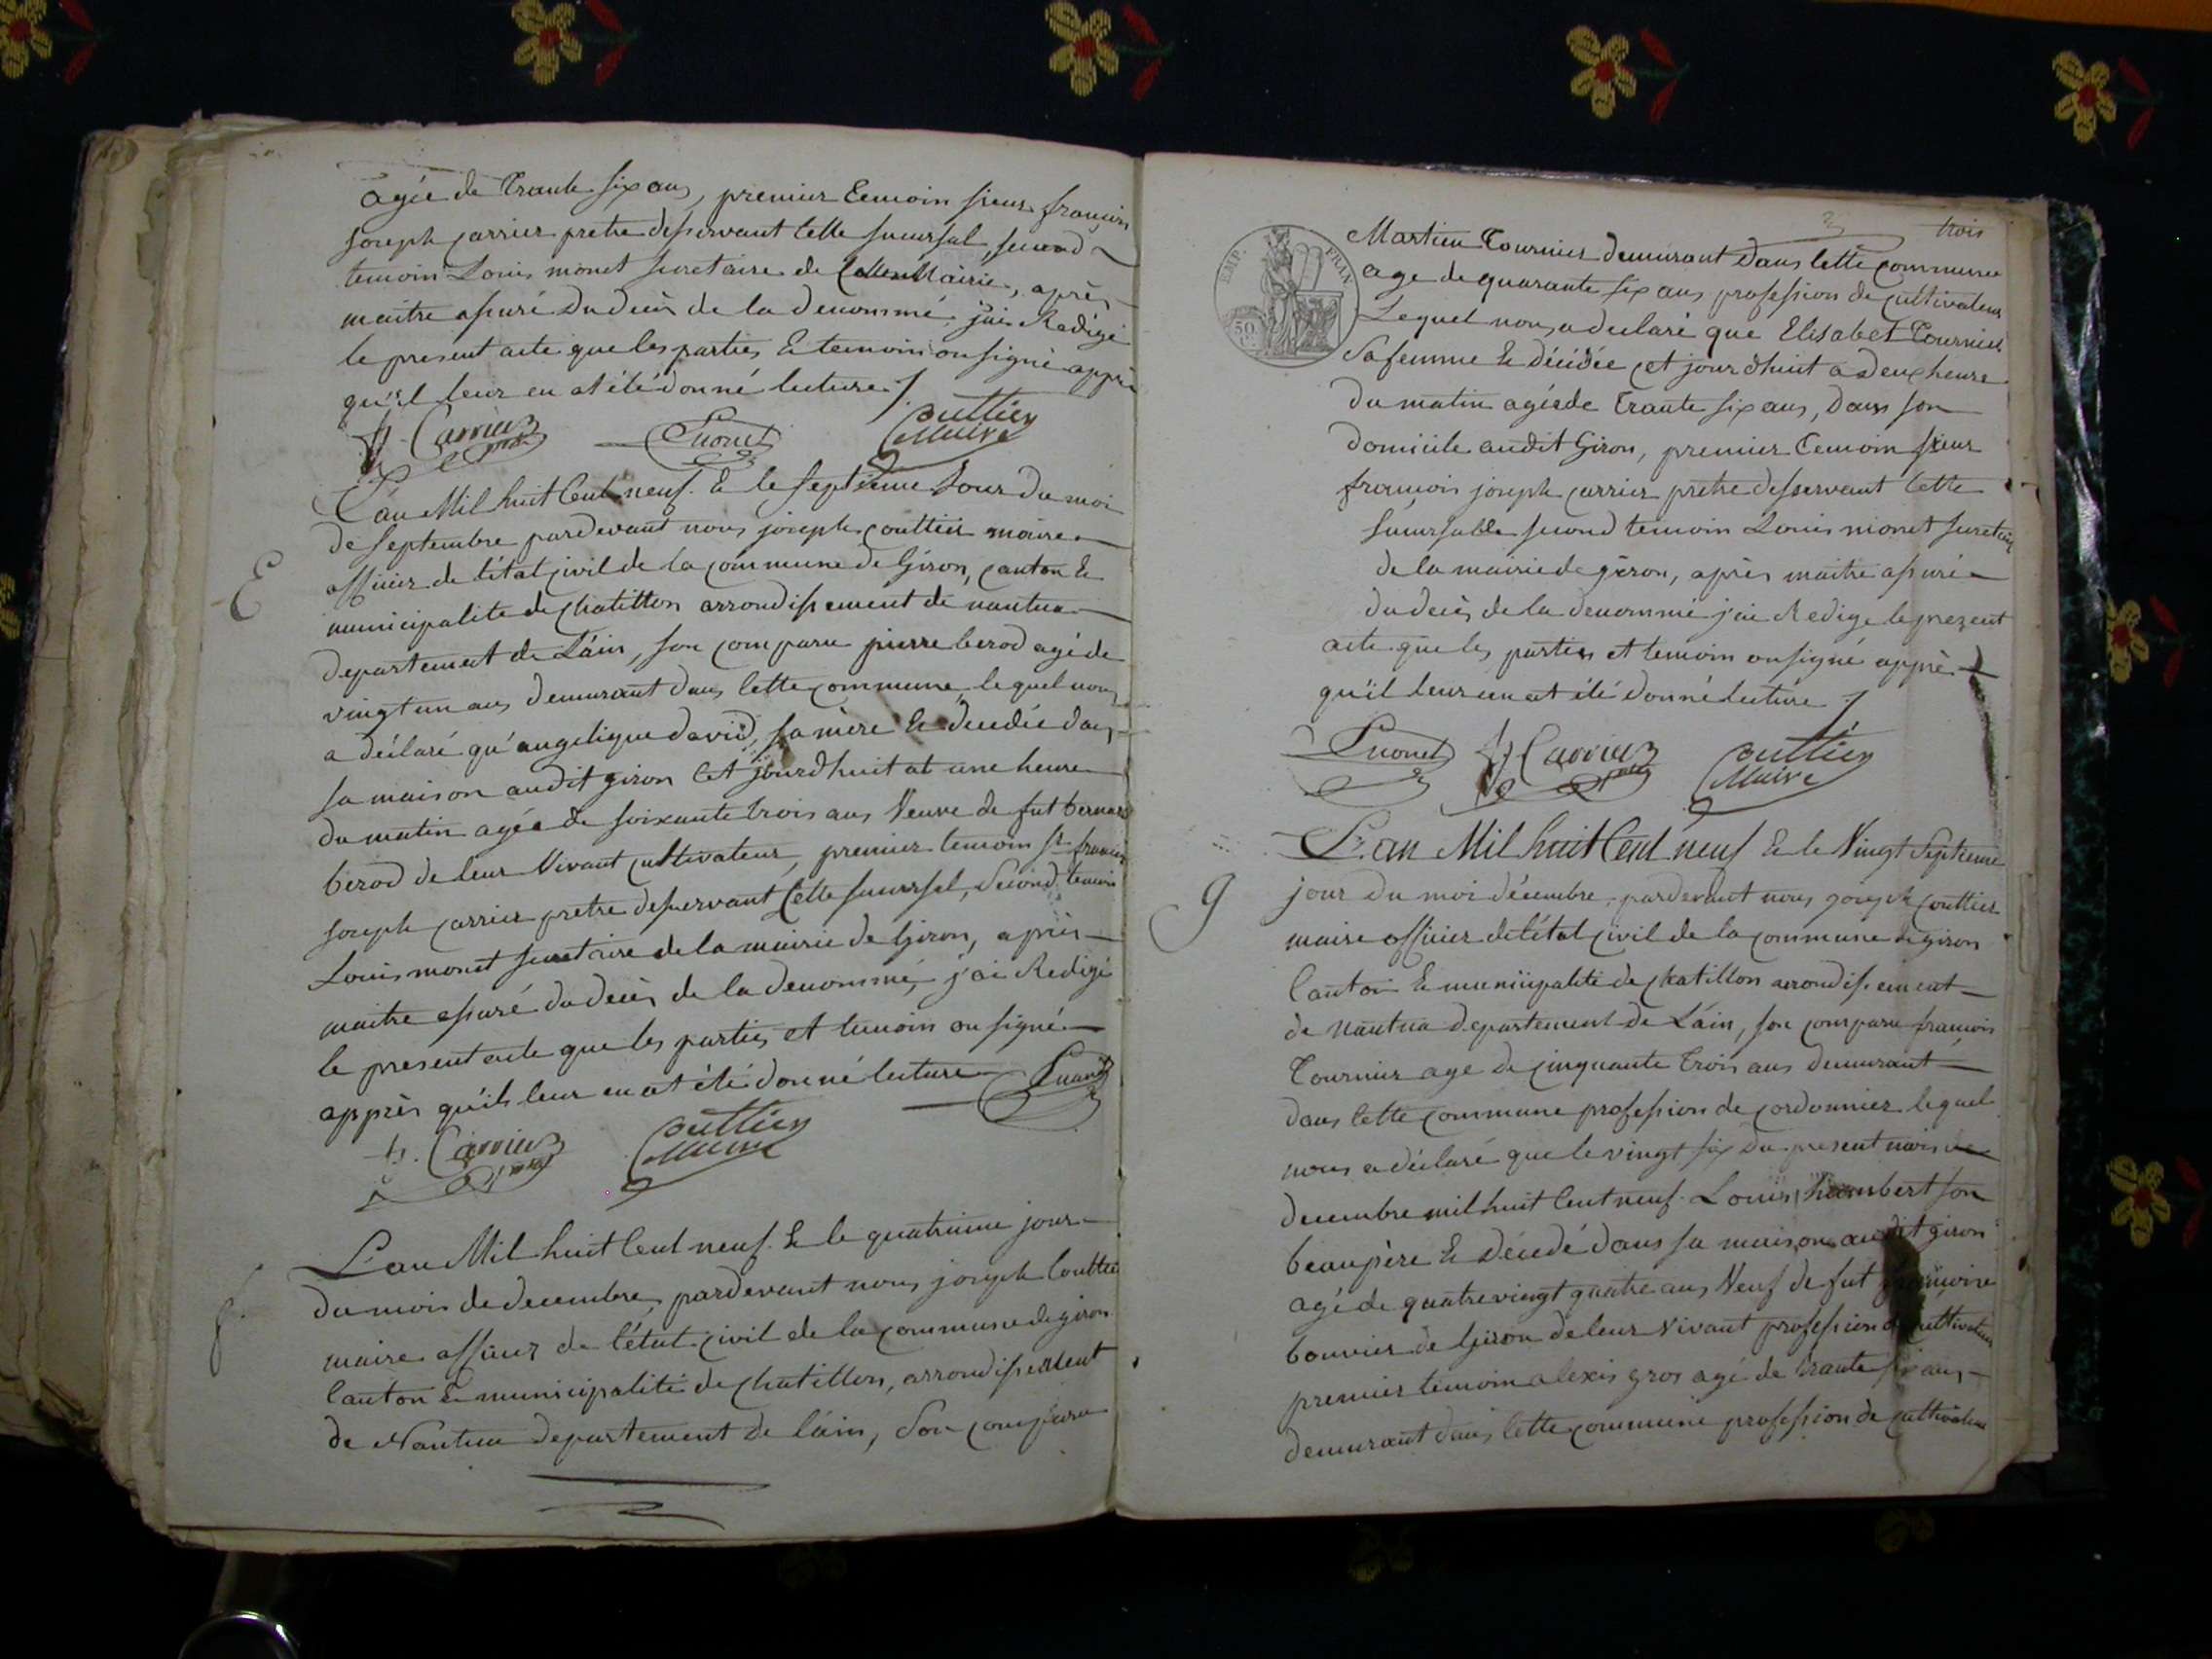 agée de trante six ans, premier temoin sieur françois
joseph carrier pretre desservant cette sucursal, second
temoin Louis monet secretaire de cette Mairie, après
maitre assuré du decès de la denommé, j'ai Redigé
le present acte que les parties & temoin on signé apprè
qu'il leur en at été donné lecture /.
fj. Carrier ptre Lmonet Couttier Maire
L'an Mil huit Cent neuf. & le septieme Jour du moi
de septembre pardevant nous joseph couttier maire
E
officier de l'état civil de la commune de Giron, canton &
municipalite de chatillon arrondissement de nantua
departement de L'ain, son comparu pierre berod agé de
vingt un ans demurant dans cette commune lequel nous
a déclaré qu'angelique david, sa mère & decedée dans
sa maison audit giron cet jourdhuit at une heure
du matin agée de soixante trois ans Veuve de fut bernard
berod de leur Vivant cultivateur, premier temoin sr. francois
joseph carrier pretre desservant Cette sucursal, Second temoin
Louis monet secretaire de la mairie de Giron, après
maitre assuré du decès de la denommé, j'ai Redigé
le present acte que les parties et temoin on signé
apprès qu'ils leur en at été donné lecture Lmonet
fj. Carrier ptre Couttier Maire
L'an Mil huit Cent neuf. & le quatrieme jour
du mois de decembre, pardevant nous joseph Couttier
8
maire officier de l'état civil de la commune de giron
Canton & municipalité de chatillon, arrondissement
de Nantua departement de l'ain, Son comparu
3 trois
EMP. FRAN
50 C.
Martieu Tournier demurant Dans cette commune
age de quarante six ans profession de cultivateur
Lequel nous a declaré que Elisabet Tournier
Sa femme & décédée cet jourdhuit a deux heure
du matin agée de trante six ans, dans son
domicile audit Giron, premier temoin sieur
françois joseph carrier pretre desservant cette
sucursalle second temoin Louis monet secretaire
de la mairie de giron, après maitre assuré
du decès de la denommé j'ai Redige le prezent
acte que les parties et temoin on signé apprè
qu'il leur en at été donné lecture /
Lmonet fj Carrier ptre Couttier Maire
L'an Mil huit Cent neuf & le Vingt Septieme
9
jour du moi décembre, pardevant nous joseph couttier
maire officier de l'état civil de la commune de giron
Canton & municipalité de chatillon arrondissement
de nantua departement de L'ain, son comparu francois
Tournier age de cinquante trois ans demurant
dans cette commune profession de cordonnier lequel
nous a déclaré que le vingt six du present mois de
decembre mil huit Cent neuf. Louis humbert son
beaupère & décedé dans sa maison audit giron
agé de quatre vingt quatre ans Veuf de fut
bouvier de Giron de leur vivant profession de cultivateur
premier temoin alexis gros agé de trante six ans
demurant dans cette commune profession de cultivateur